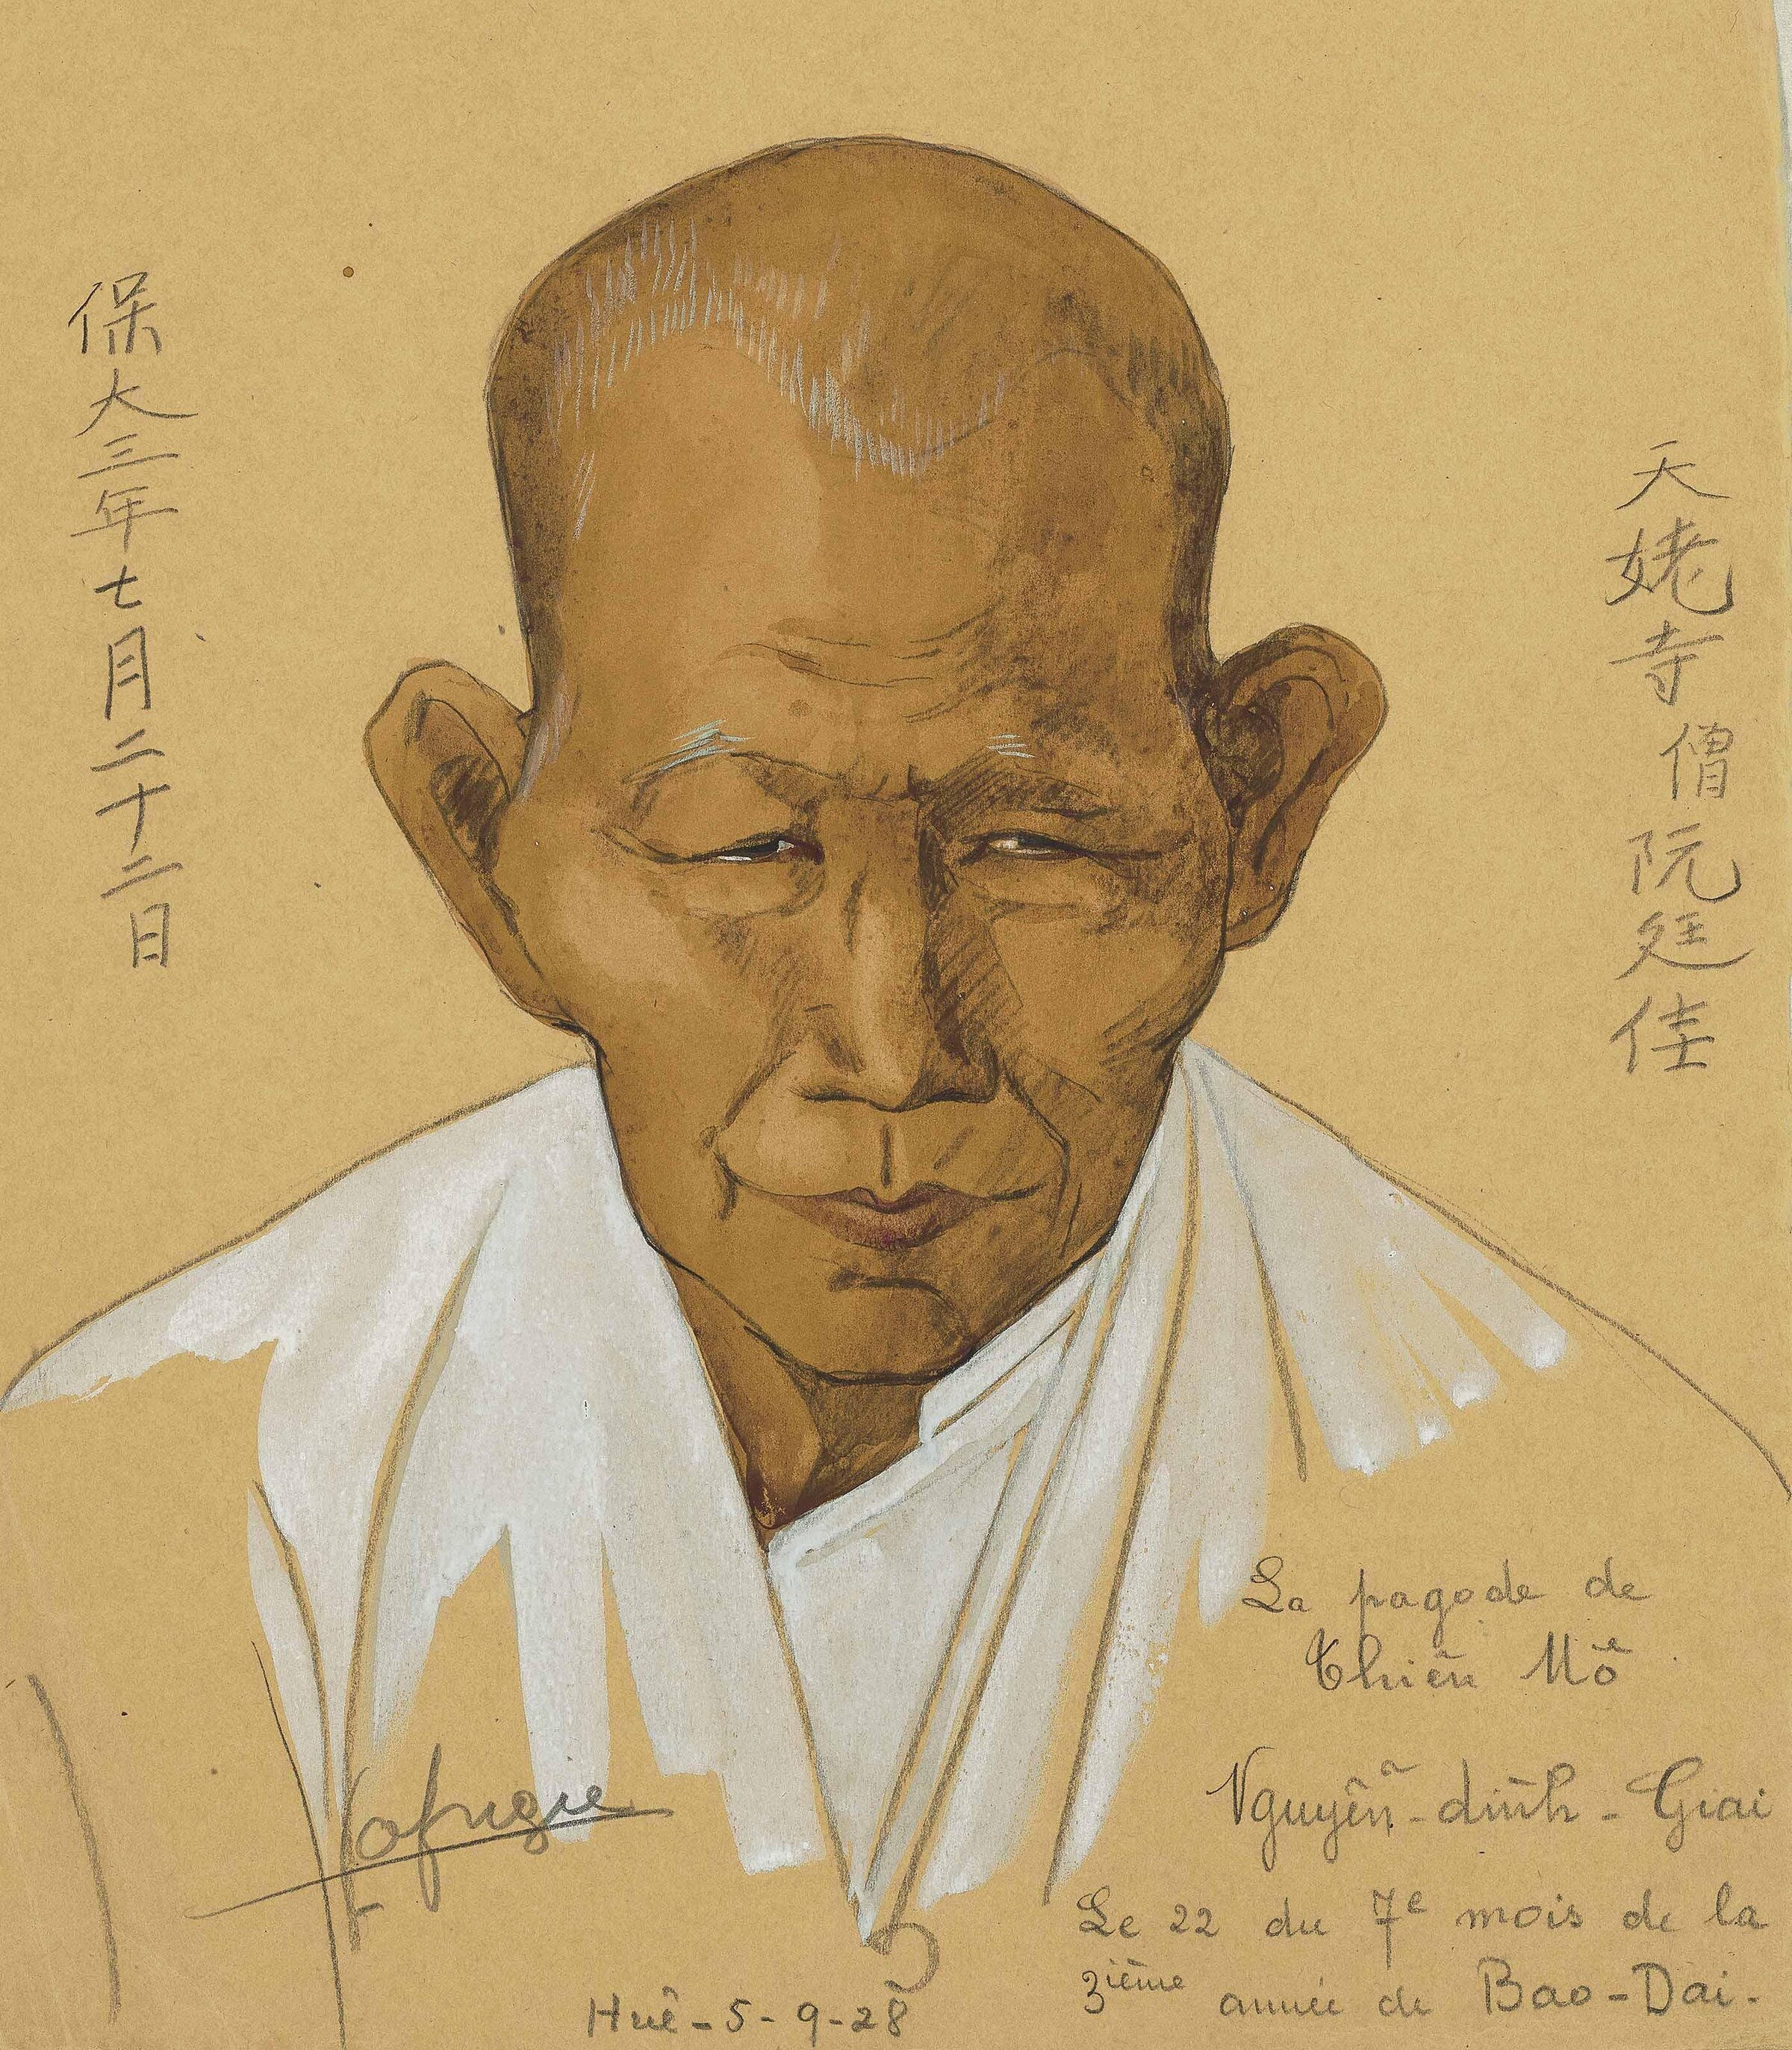 天姥寺僧阮廷佳
保大三年七月二十二日
La pagode de
Thiên Mô
Nguyêñ-dinh-Giai
Le 22 du 7e mois de la
3ième année de Bao-Dai.
Huê-5-9-28